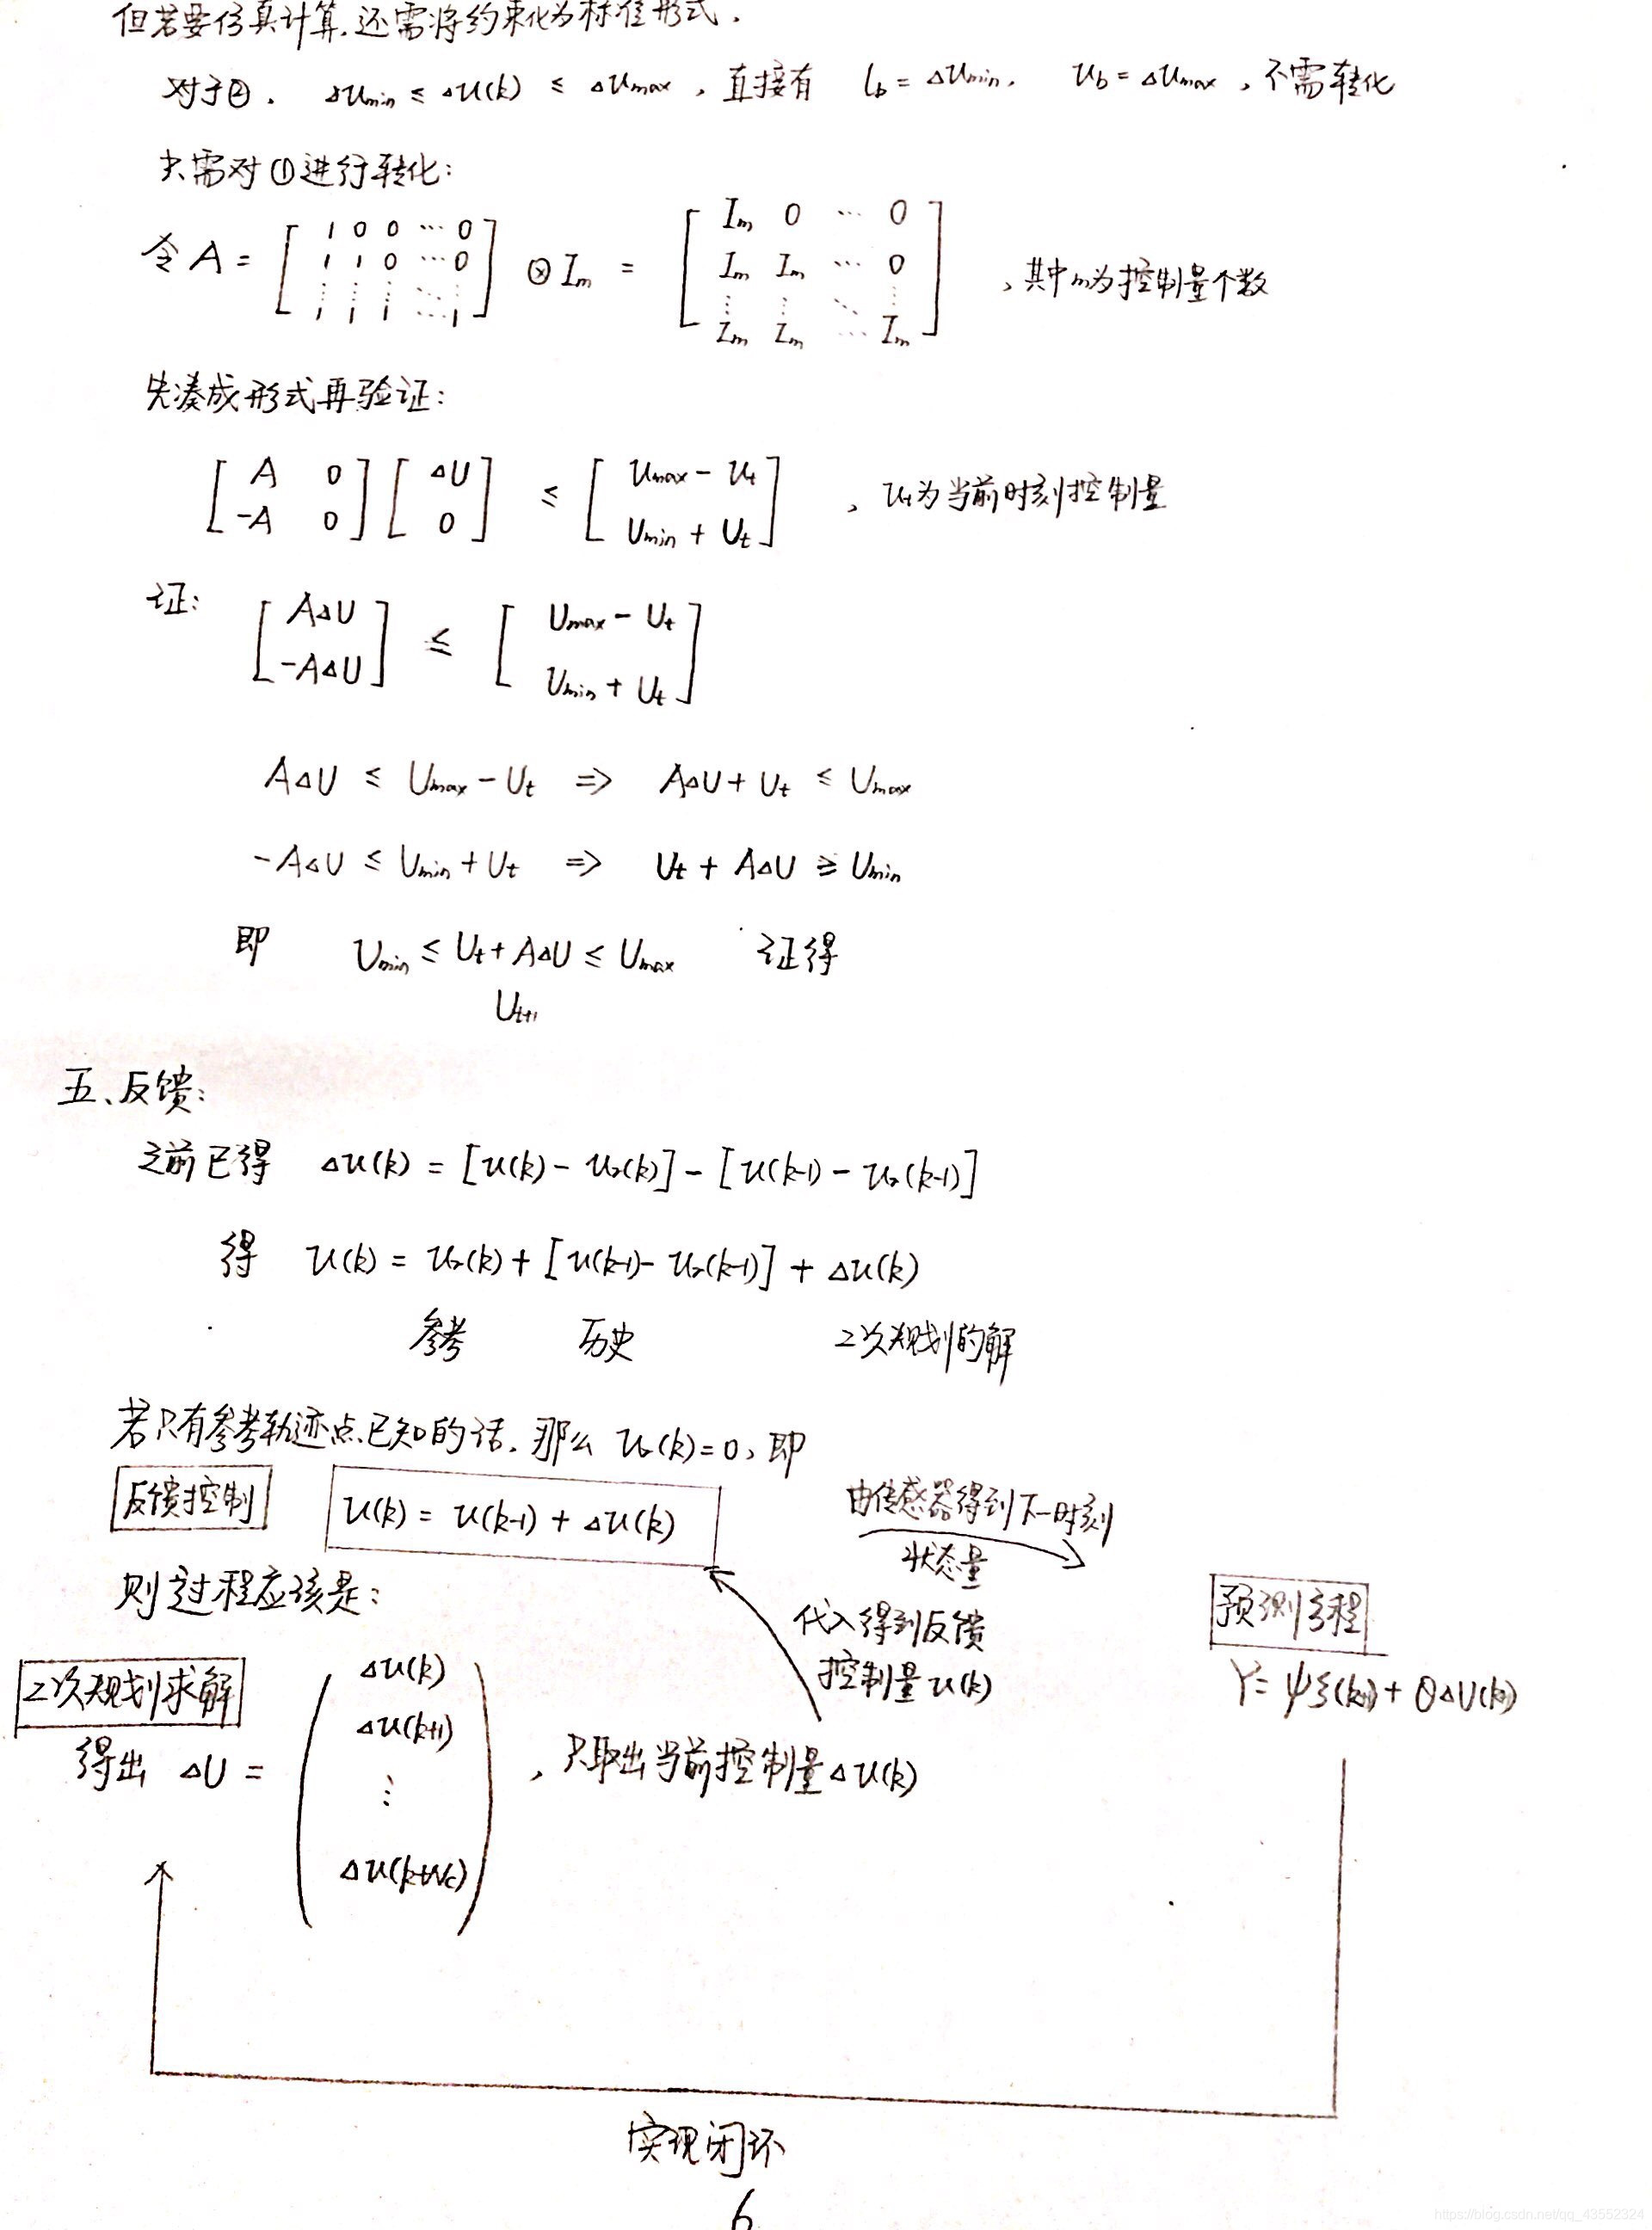 但若要仿真计算,还需将约束化为标准形式.
对于②. Δumin ≤ Δu(k) ≤ Δumax , 直接有 lb = Δumin. ub = Δumax , 不需转化
只需对①进行转化:
令 A = [ 1 0 0 ⋯ 0 ; 1 1 0 ⋯ 0 ; ⋮ ⋮ ⋮ ⋱ ⋮ ; 1 1 1 ⋯ 1 ] ⊗ Im = [ Im 0 ⋯ 0 ; Im Im ⋯ 0 ; ⋮ ⋮ ⋱ ⋮ ; Im Im ⋯ Im ] , 其中m为控制量个数
先凑成形式再验证:
[ A 0 ; -A 0 ] [ ΔU ; 0 ] ≤ [ Umax - Ut ; Umin + Ut ] , ut为当前时刻控制量
证: [ AΔU ; -AΔU ] ≤ [ Umax - Ut ; Umin + Ut ]
AΔU ≤ Umax - Ut ⇒ AΔU + Ut ≤ Umax
-AΔU ≤ Umin + Ut ⇒ Ut + AΔU ≥ Umin
即 Umin ≤ Ut + AΔU ≤ Umax 证得
Ut+1
五、反馈:
之前已得 Δu(k) = [u(k) - ur(k)] - [u(k-1) - ur(k-1)]
得 u(k) = ur(k) + [u(k-1) - ur(k-1)] + Δu(k)
参考 历史 二次规划的解
若只有参考轨迹点已知的话, 那么 ur(k)=0, 即
反馈控制 u(k) = u(k-1) + Δu(k)
由传感器得到下一时刻
状态量
则过程应该是:
代入得到反馈
控制量u(k)
预测方程
Y = ψξ(k) + ΘΔU(k)
二次规划求解
得出 ΔU = ( Δu(k) ; Δu(k+1) ; ⋮ ; Δu(k+Nc) ) , 只取出当前控制量Δu(k)
实现闭环
6
https://blog.csdn.net/qq_43552324